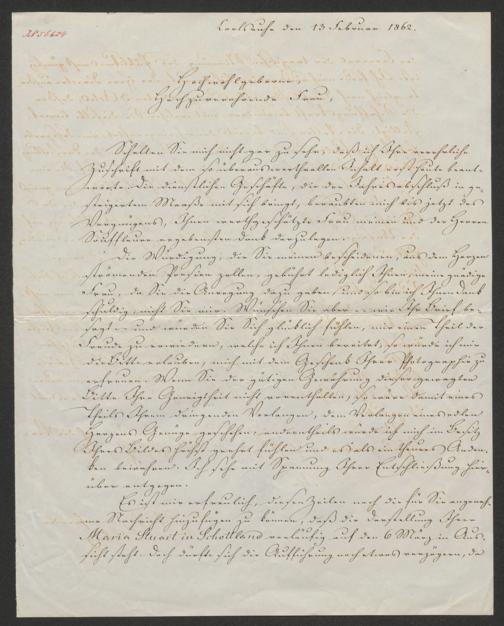 Carlsruhe den 13 Februar 1862.
Hochwohlgeborne,
Hochzuverehrende Frau,
Schelten Sie mich nicht gar zu sehr, daß ich Ihre verehrliche
Zuschrift mit dem so überaus werthvollen Inhalt erst heute beant-
worte. Die dienstlichen Geschäfte, die der Jahresabschluß in ge-
steigertem Maaße mit sich bringt, beraubten mich bis jetzt des
Vergnügens, Ihnen werthgeschätzte Frau meinen und der Herren
Souffleure ergebensten Dank darzulegen.
Die Würdigung, die Sie meinen bescheidenen, aus dem Herzen
strömenden Poesien zollen, gebührt lediglich Ihnen, meine gnädige
Frau, da Sie die Anregung dazu gaben, und so bin ich Ihnen Dank
schuldig, nicht Sie mir. Wünschen Sie aber – wie Ihr Brief be-
sagt – und würden Sie Sich glücklich fühlen, mir einen Theil der
Freude zu erwiedern, welche ich Ihnen bereitet, so würde ich mir
die Bitte erlauben, mich mit dem Geschenk Ihrer Photographie zu
erfreuen. Wenn Sie der gütigen Gewährung dieser gewagten
Bitte Ihre Geneigtheit nicht vorenthalten, so wäre damit eines
Theils Ihrem dringenden Verlangen, dem Verlangen eines edlen
Herzens Genüge geschehen, andrentheils würde ich mich im Besitz
Ihres Bildes höchst geehrt fühlen und es als ein theures Anden-
ken bewahren. Ich sehe mit Spannung Ihrer Entschließung hier-
über entgegen.
Es ist mir erfreulich, diesen Zeilen noch die für Sie angeneh-
me Nachricht hinzufügen zu können, daß die Darstellung Ihrer
Maria Stuart in Schottland vorläufig auf den 6 März in Aus-
sicht steht. Doch dürfte sich die Aufführung noch etwas verzögern, da